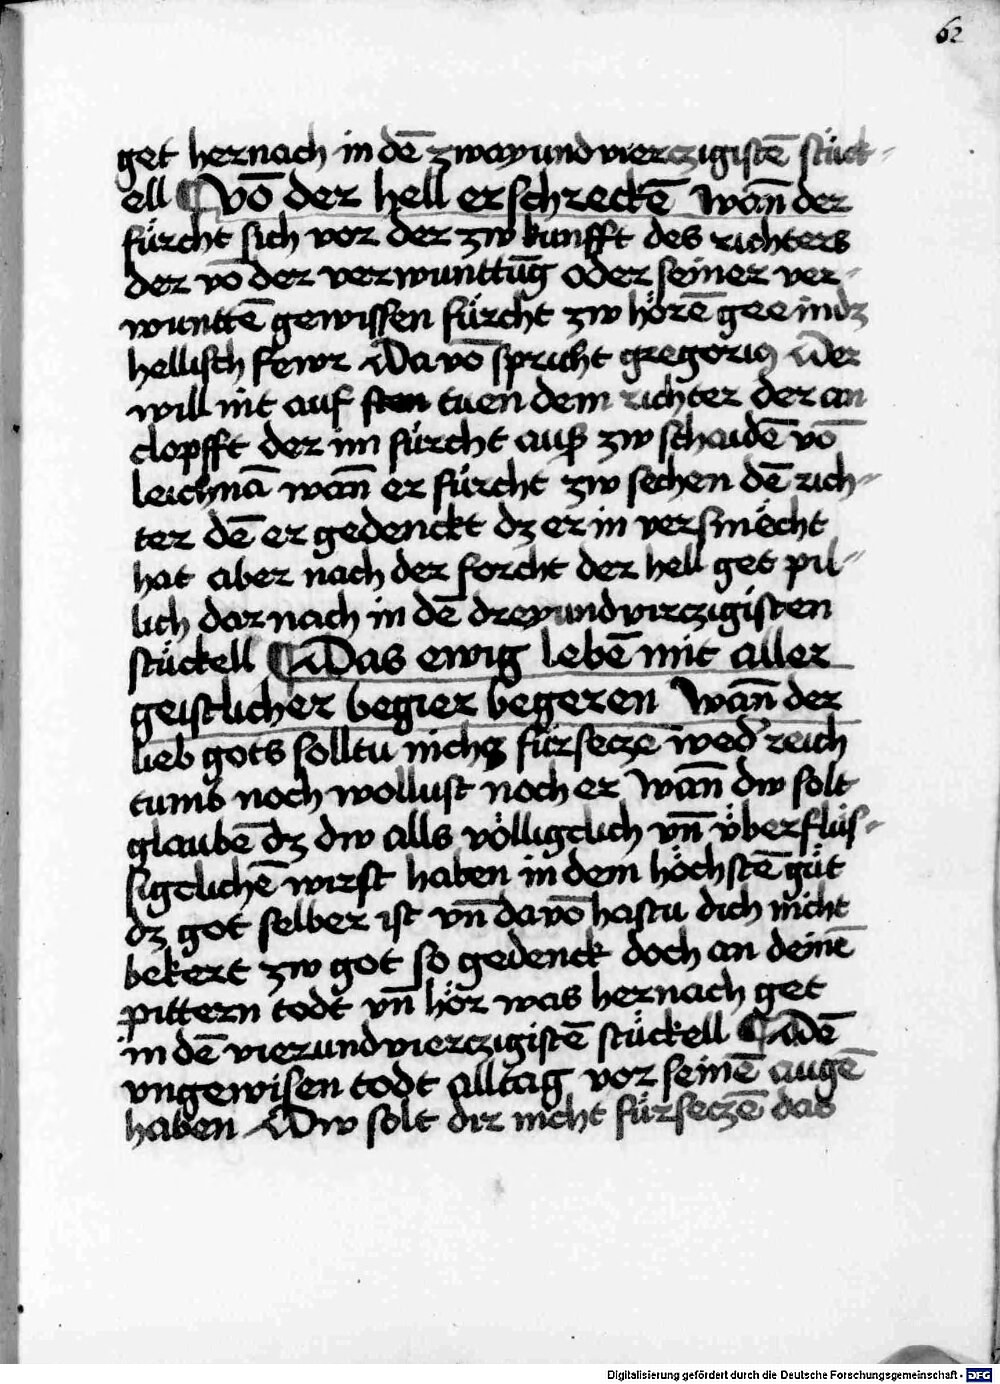 62
get hernach in dē zwayundvierczigistē stück-
ell ¶ vō der hell erschreckē wan̄ der
fürcht sich vor der zw kunfft des richters
der vō der verwunttūg oder seiner ver-
wunttē gewissen fürcht zw hörē gee in dz
hellisch fewr Da vō spricht gregoriꝰ Wer
will nit auf tuen dem richter der an
clopfft der im fürcht auß zw schaidē vō
leichnā wan̄ er fürcht zw sechen dē rich-
ter dē er gedenckt dz er in versmëcht
hat aber nach der forcht der hell get pil-
lich dar nach in dē dreyundvirczigisten
stückell ¶ Das ewig lebē mit aller
geistlicher begier begeren Wan̄ der
lieb gots solltu nichs fürseczē wed' reich
tums noch wollust noch er Wan̄ dw solt
glaubē dz dw alls völligclich vn̄ überflüs-
sigclichē wirst haben in dem höchstē güt
dz got selber ist vn̄ da vō hastu dich nicht
bekert zw got so gedenck doch an deinē
pittern todt vn̄ hör was hernach get
in dē vierundvierczigistē stückell ¶ Dē
vngewisen todt alltag vor seinē augē
haben Dw solt dir nicht fürseczē das
Digitalisierung gefördert durch die Deutsche Forschungsgemeinschaft - DFG